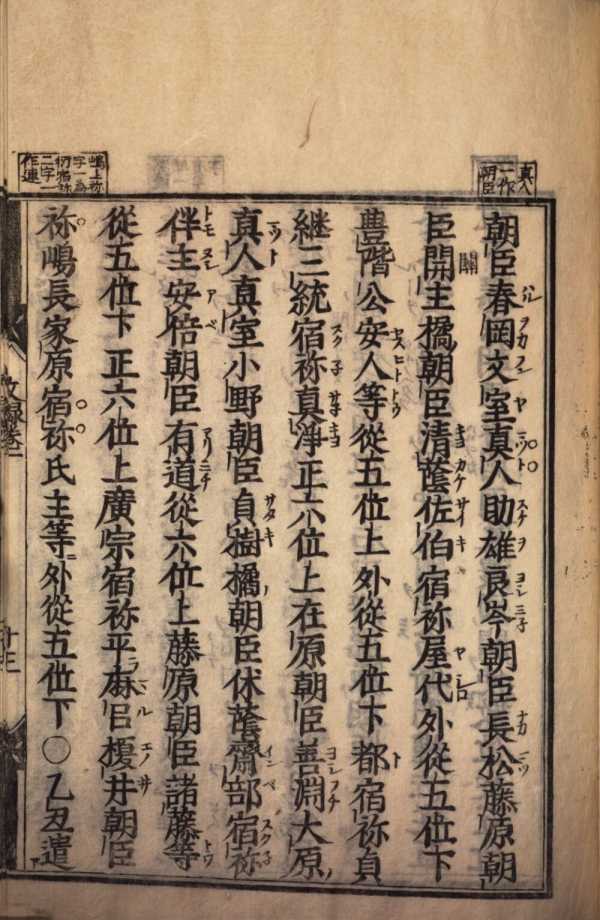 真人
一作
朝臣
朝臣春岡文室真人助雄良岑朝臣長松藤原朝
臣開主橘朝臣清蔭佐伯宿祢屋代外從五位下
豊階公安人等從五位上外從五位下都宿祢貞
継三統宿祢真淨正六位上在原朝臣善淵大原
真人真室小野朝臣貞樹橘朝臣休蔭齋部宿祢
伴主安倍朝臣有道從六位上藤原朝臣諸藤等
從五位下正六位上廣宗宿祢平麻呂榎井朝臣
祢嶋長家原宿祢氏主等外從五位下○乙丑遣
嶋上祢
字一為
衍宿祢
二字一
作連
十三